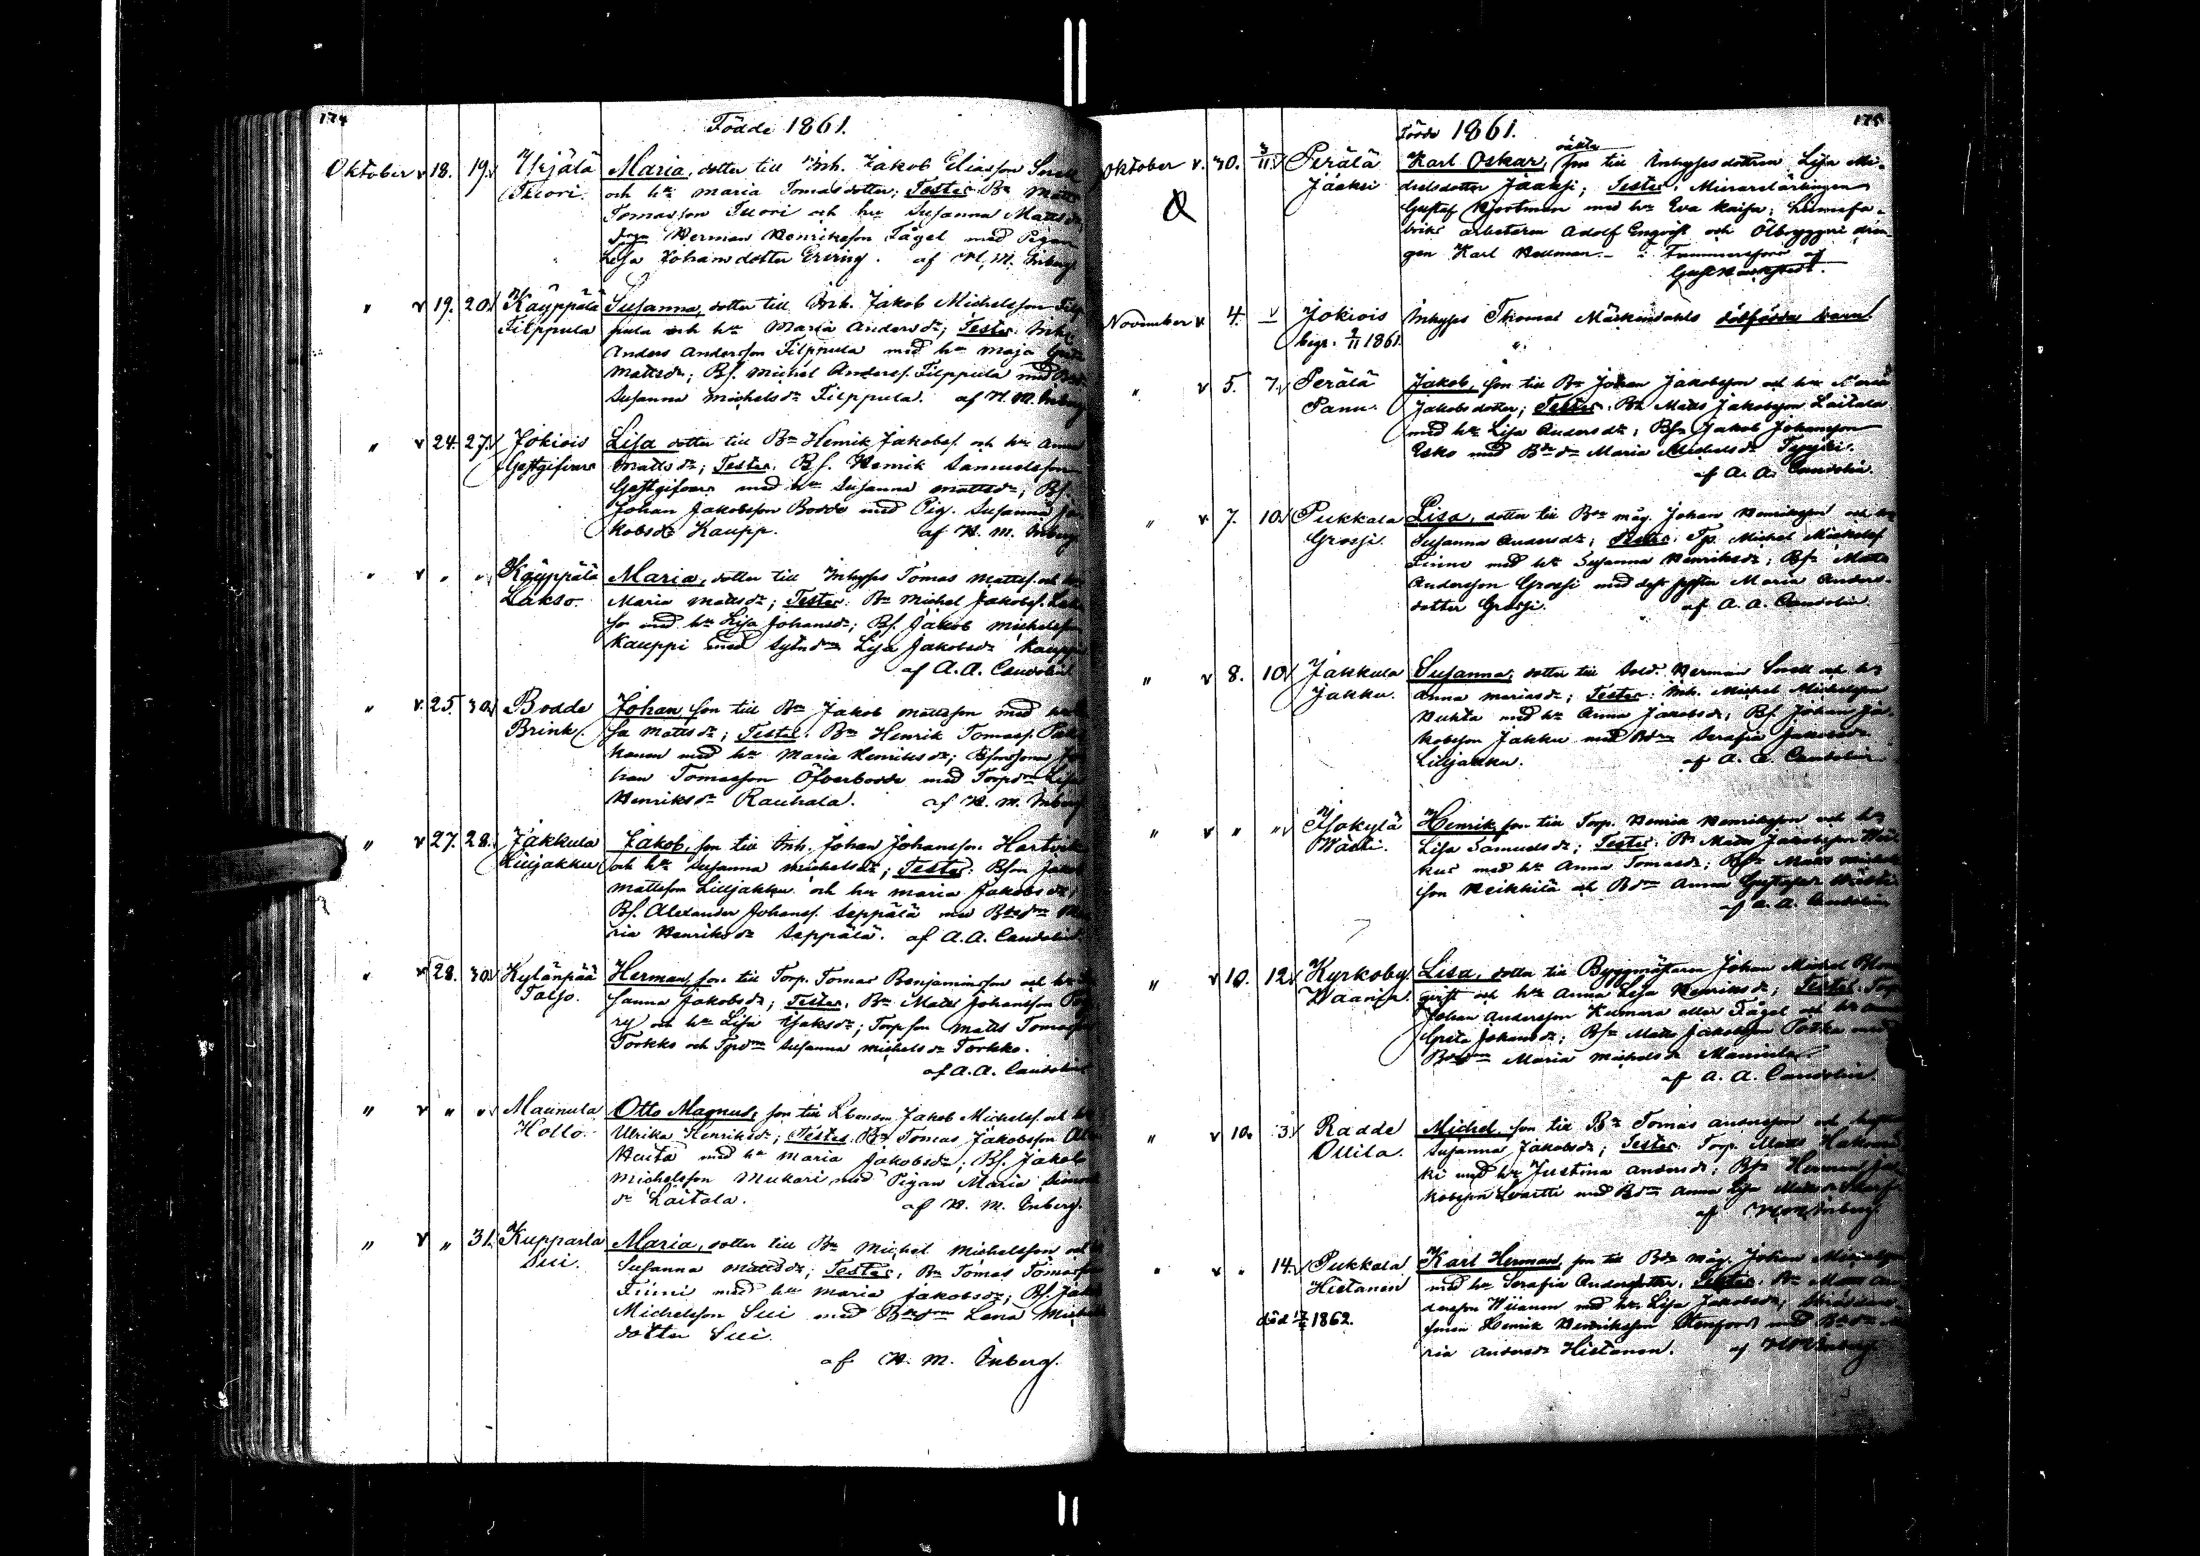 174
Födde 1861.
Oktober v 18. 19. Yrjälä Maria, dotter till Inh. Jakob Eliasson Snell
Tuori. och h. Maria Tomasdotter; Testes: Bn Matts
Tomasson Tuori och hu Susanna Mattsdr
Herman Henriksson Tågel med Pigan
Lisa Johansdotter Ering. af H. M. Inberg.
" v 19. 20. Käyppälä Susanna, dotter till Inh. Jakob Michelsson Filp-
Filppula pula och hu Maria Andersdr; Testes: Inh.
Anders Andersson Filppula med hu Maja Greta
Mattsdr; Bs. Michel Anderss. Filppula med
Susanna Michelsdr Filppula. af H. M. Inberg
" v 24. 27. Jokiois Lisa dotter till Bn Henrik Jakobss. och hu Anna
Gestgifvars Mattsdr; Testes: Bs. Henrik Samuelsson
Gestgifvars med hu Susanna Mattsdr; Bs.
Johan Jakobsson Bodde med Pig. Susanna Ja-
kobsdr Kaupp. af H. M. Inberg
" v " " Käyppälä Maria, dotter till Inhyses Tomas Mattss. och hu
Lakso. Maria Mattsdr; Testes: Bn Michel Jakobss. Lak-
so med hu Lisa Johansdr; Bs. Jakob Michelsson
Kauppi med Sytndrn Lisa Jakobsdr Kauppi
af A. A. Candolin
" v. 25. 30. Bodde Johan, son till Bn Jakob Mattsson med hu Li-
Brink sa Mattsdr; Testes: Bn Henrik Tomass.
med hu Maria Henriksdr; Bsonsonen Jo-
han Tomasson Öfverbodde med Torpdrn Lisa
Henriksdr Rauhala. af H. M. Inberg
" v 27. 28. Jakkula Jakob, son till Inh. Johan Johansson Hartvik
Lilljakku och hu Susanna Michelsdr; Testes: Bson Jakob
Mattsson Lilljakku och hu Maria Jakobsdr;
Bs. Alexander Johanss. Seppälä med Bdrn Ma-
ria Henriksdr Seppälä. af A. A. Candolin.
" v 28. 30. Kylänpää Herman, son till Torp. Tomas Benjaminsson och hu Su-
Taljo. sanna Jakobsdr; Testes: Bn Matts Johansson
och hu Lisa Isaksdr; Torp son Matts Tomasson
Torkko och Tpdrn Susanna Michelsdr Torkko.
af A. A. Candolin
" v " " Maunula Otto Magnus, son till Jakob Michelss. och hu
Hollo. Ulrika Henriksdr; Testes: Bn Tomas Jakobsson
med hu Maria Jakobsdr; Bs. Jakob
Michelsson Mukari med Pigan Maria Simons
dr Laitala. af H. M. Inberg.
" v " 31. Kupparla Maria, dotter till Bn Michel Michelsson och hu
Sui. Susanna Mattsdr; Testes: Bn Tomas Tomasson
Finni med hu Maria Jakobsdr; Bs. Jakob
Michelsson Sui med Bdrn Lena Michels
dotter Sui.
af H. M. Inberg.
175
Födde 1861.
Oktober v. 30. 3/11 Perälä Karl Oskar, oäkta son till Inhysesdottren Lisa Mi-
Jääksi chelsdotter Jääksi; Testes: Murarelärlingen
Gustaf Hjortman med hu Eva Kaisa; Linnefa-
briks arbetaren Adolf Engvist och Ölbryggeri drän-
gen Karl Hellman. - i Tammerfors af
November v 4. v Jokiois Inhyses Thomas Märkendahls dödfödda barn
begr. 9/11 1861.
" v 5. 7. Perälä Jakob, son till Bn Johan Jakobsson och hu Maria
Panu. Jakobsdotter; Testes: Bn Matts Jakobsson Laitala
med hu Lisa Andersdr; Bsn Jakob Johansson
Esko med Bdrn Maria Michelsdr
af A. A. Candolin.
" v 7. 10. Pukkala Lisa, dotter till Bns måg. Johan Henriksson och hu
Grossi. Susanna Andersdr; Testes: Tp. Michel Michelss.
Linne med hu Susanna Henriksdr; Bsn Matts
Andersson Grossi med dess syster Maria Anders-
dotter Grossi. af A. A. Candolin.
" v 8. 10 Jakkula Susanna, dotter till Sold. Herman Snell och hu
Jakku. Anna Mariasdr; Testes: Inh. Michel Michelsson
Huhta med hu Anna Jakobsdr; Bs. Johan Ja-
kobsson Jakku med Bdrn Serafia Jakobsdr
Lilljakku. af A. A. Candolin
" v " " Isokylä Henrik, son till Torp. Henrik Henriksson och hu
Wäski. Lisa Samuelsdr; Testes: Bn Matts Jakobsson
med hu Anna Tomasdr; Bsn Matts
son Heikkilä och Bdrn Anna Gustafsdr
af A. A. Candolin
" v 10. 12. Kyrkoby Lisa, dotter till Byggmästaren Johan Michel Blom
Waanin. qvist och hu Anna Lisa Henriksdr; Testes: Torp
Johan Andersson Kumara eller Tågel och hu Anna
Greta Johansdr; Bsn Matts Jakobsson Potka med
Bdrn Maria Michelsdr
af A. A. Candolin.
" v 10. 3. Radde Michel, son till Bn Tomas Andersson och hustru
Ollila. Susanna Jakobsdr; Testes: Torp. Matts Hakomä-
ki med hu Justina Andersdr; Bsn Herman Ja-
kobsson med Bdrn Anna Lisa
af H. M. Inberg.
" v " 14. Pukkala Karl Herman, son till Bns måg. Johan Michelsson
Hietanen med hu Serafia Andersdotter; Testes: Bn Matts An-
död 1862. dersson Hiianen med hu Lisa Jakobsdr;
Henrik Henriksson Stenfors med Bdrn Ma-
ria Andersdr Hietanen. af H M Inberg